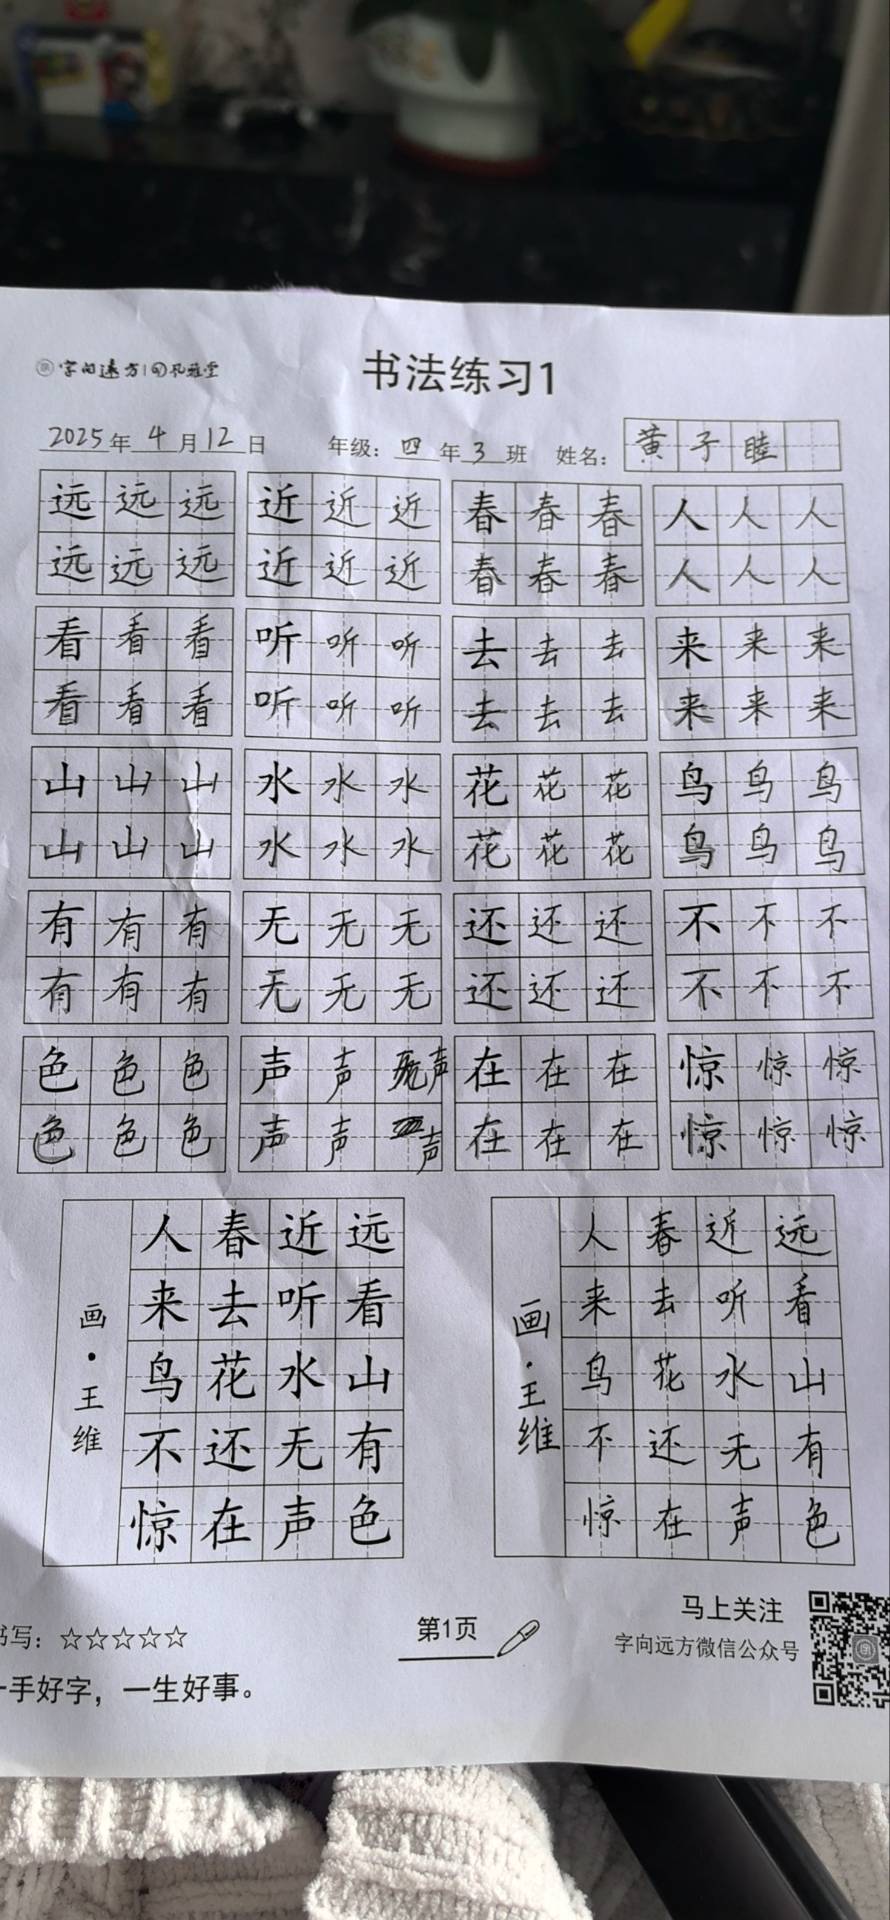 字向遠方
书法练习1
2025年4月12日 年级：四年3班 姓名：黄子睦
远远远 近近近 春春春 人人人
远远远 近近近 春春春 人人人
看看看 听听听 去去去 来来来
看看看 听听听 去去去 来来来
山山山 水水水 花花花 鸟鸟鸟
山山山 水水水 花花花 鸟鸟鸟
有有有 无无无 还还还 不不不
有有有 无无无 还还还 不不不
色色色 声声声 在在在 惊惊惊
色色色 声声声 在在在 惊惊惊
远看山有色
近听水无声
春去花还在
人来鸟不惊
画·王维
远看山有色
近听水无声
春去花还在
人来鸟不惊
画·王维
书写：☆☆☆☆☆
一手好字，一生好事。
第1页
马上关注
字向远方微信公众号